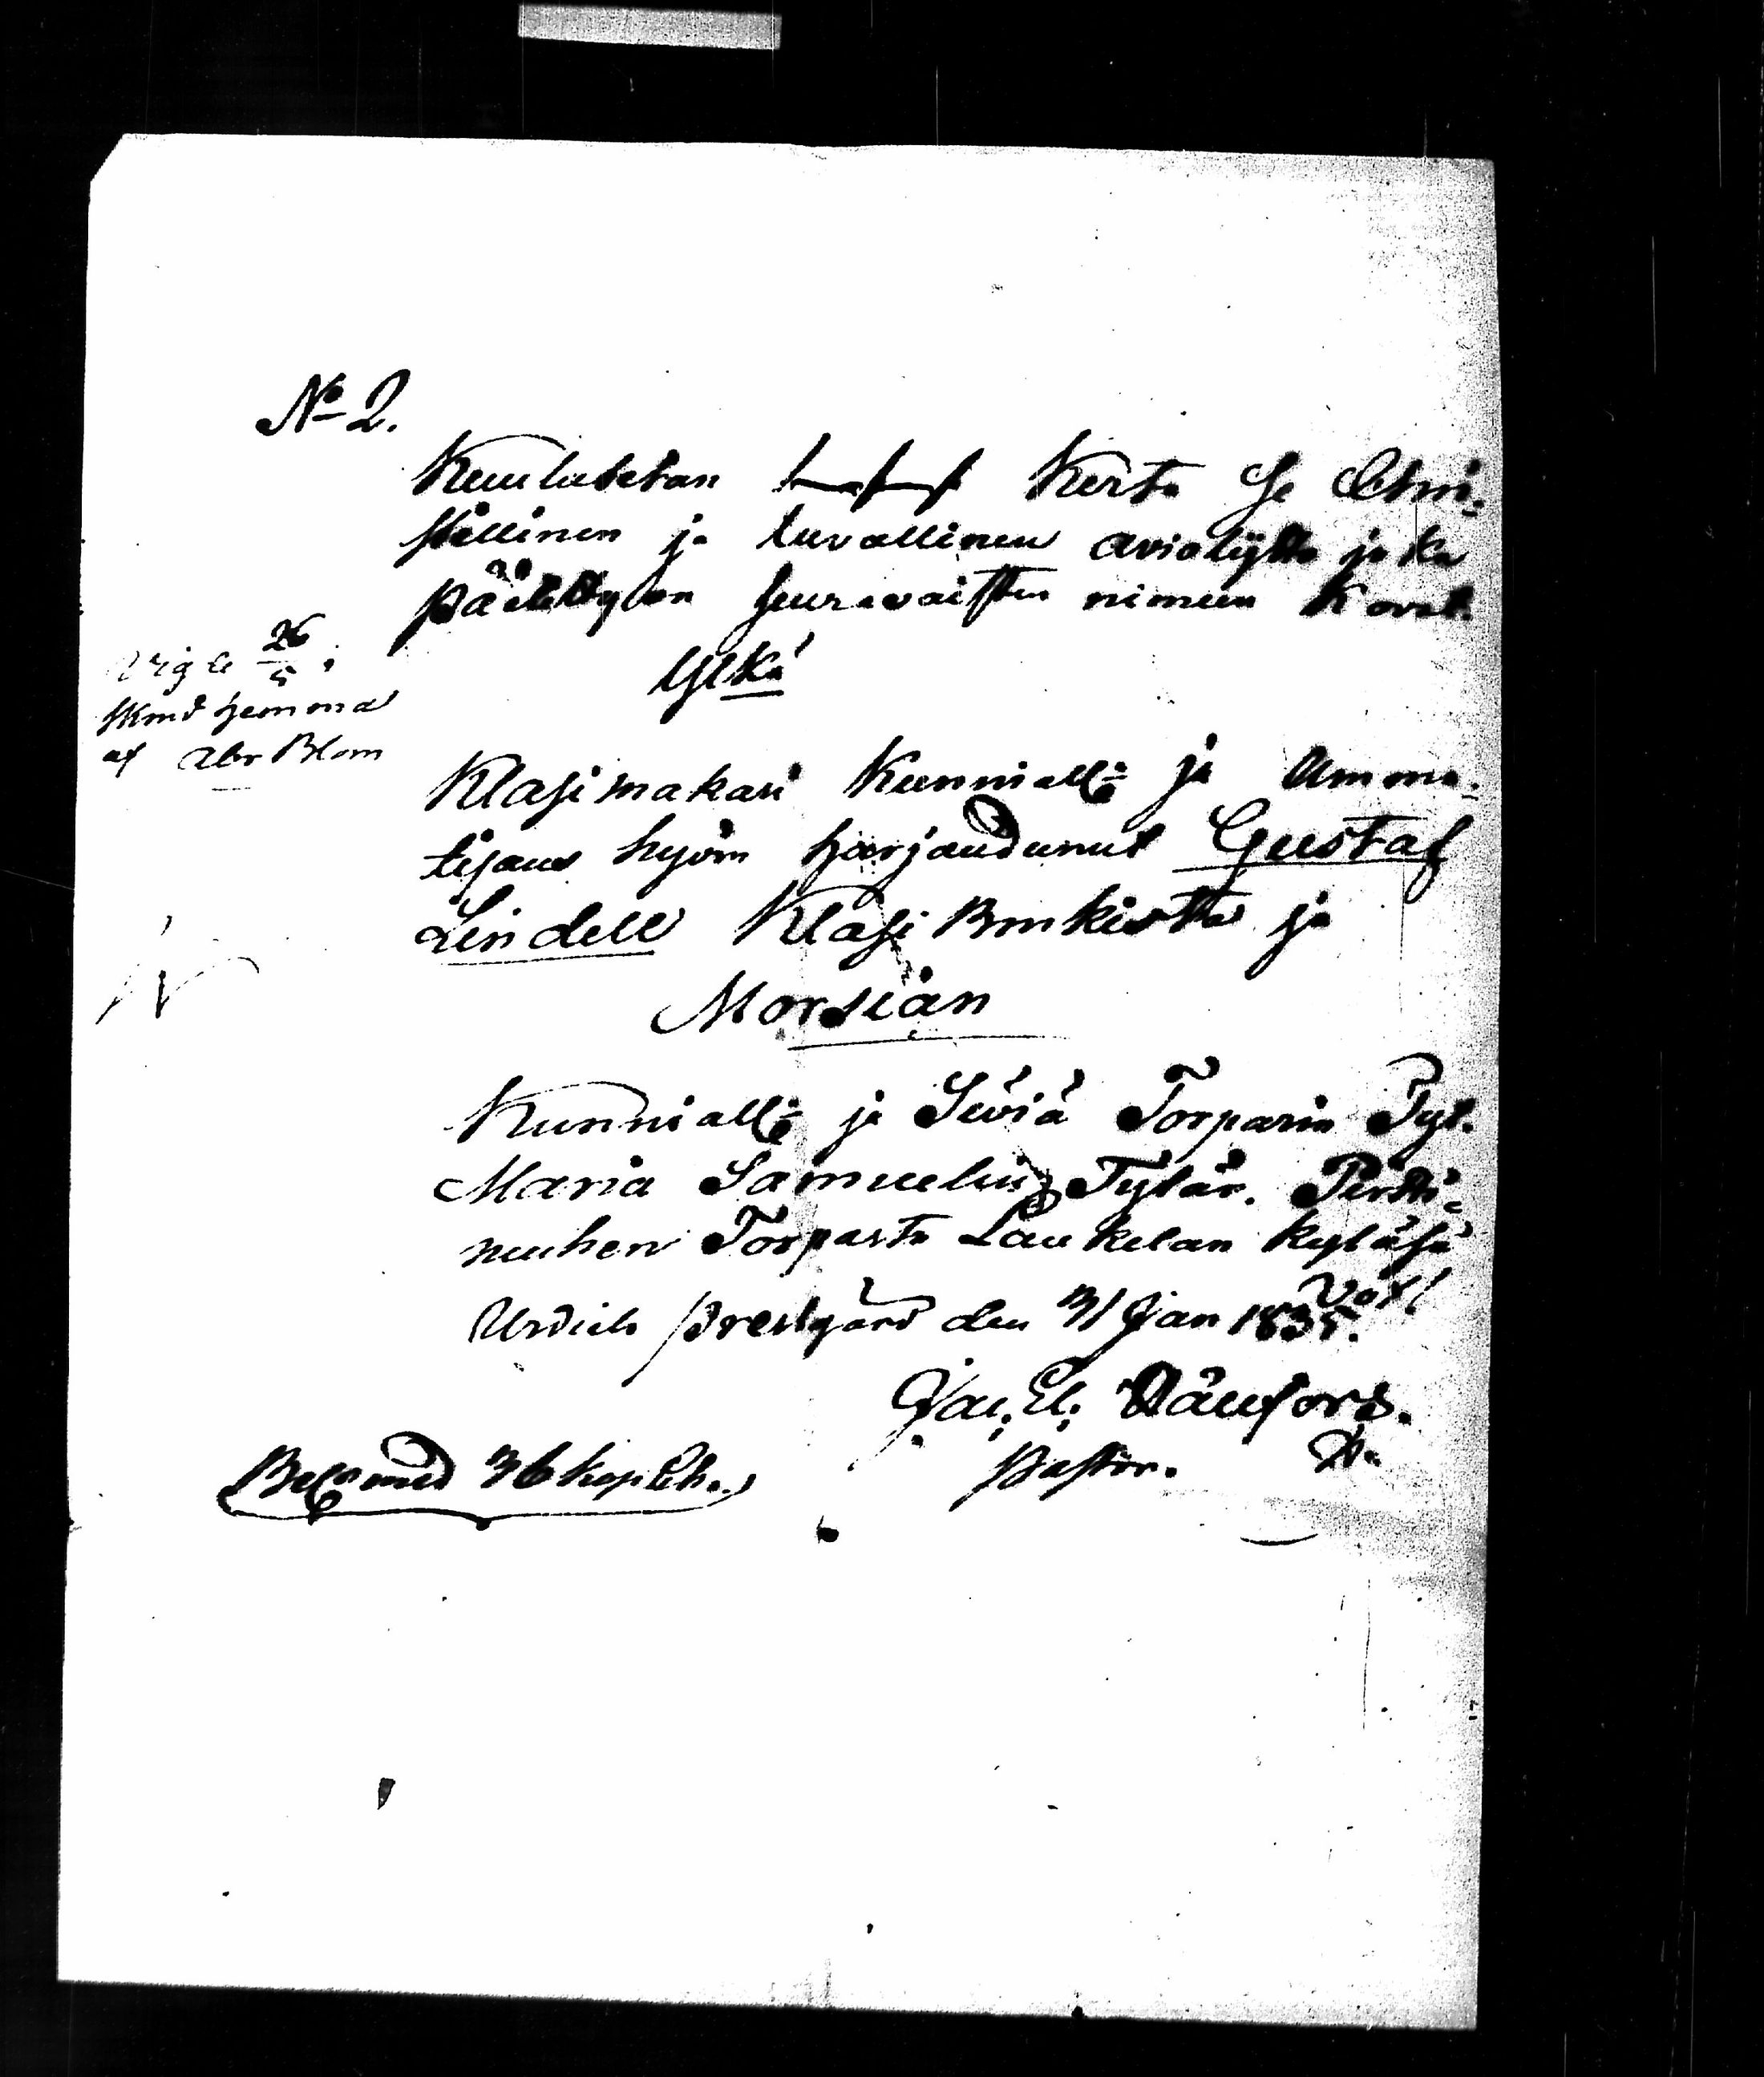 No 2.
Kuulutetan Kerta Se Chri-
stillinen ja luvallinen avioliytto joka
päätetty on seuravaisten nimein
Ylkä
Vigde 26/5
hemma
af Abr Blom
Klasimakari Kunniall: ja Amma-
tisans hyvin harjandunut Gustaf
Lindell Klasi Brukista ja
Morsian
Kunniall: ja Siviä Torparin Tyt.
Maria Samuelin Tytär. Pertti-
muhen Torpasta Laukelan kyläsä
Urdiala Prestgård den 31 Jan 1835.
Jac. El:
Pastor.
med 36 kop